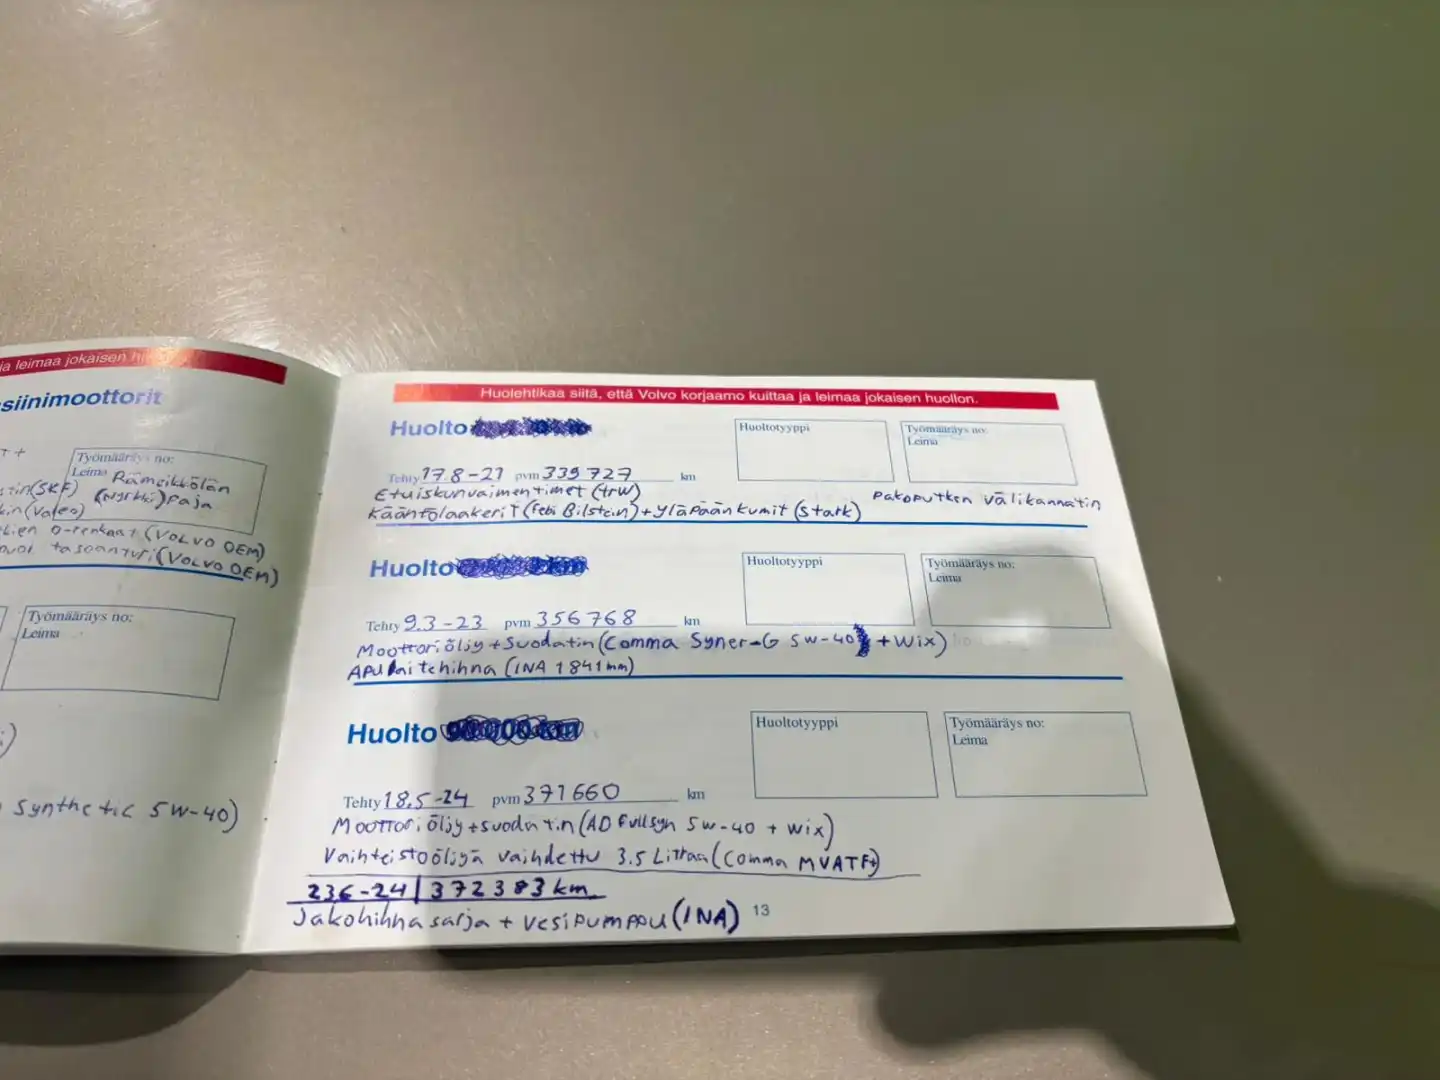 ja leimaa jokaisen
siinimoottorit
Työmääräys no:
Leima Rämeikkölän
(Nyrkki) Paja
tin (SKF)
kin (Valeo)
kien O-renkaat (VOLVO OEM)
tasoanturi (VOLVO OEM)
Työmääräys no:
Leima
Synthetic 5W-40)
Huolehtikaa siitä, että Volvo korjaamo kuittaa ja leimaa jokaisen huollon.
Huolto
Huoltotyyppi
Työmääräys no:
Leima
Tehty 17.8-21 pvm 339727 km
Etuiskunvaimentimet (trw)
Pakoputken välikannatin
Kääntölaakerit (Febi Bilstein) + yläpään kumit (Stark)
Huolto
Huoltotyyppi
Työmääräys no:
Leima
Tehty 9.3-23 pvm 356768 km
Moottoriöljy + Suodatin (Comma Syner-G 5W-40 + Wix)
Apulaitehihna (INA 1841mm)
Huolto 90 000 km
Huoltotyyppi
Työmääräys no:
Leima
Tehty 18.5-24 pvm 371660 km
Moottoriöljy + suodatin (AD Fullsyn 5W-40 + Wix)
Vaihteistoöljyä vaihdettu 3.5 Litraa (Comma MVATF+)
236-24 | 372383 km
Jakohihna sarja + vesipumppu (INA)
13